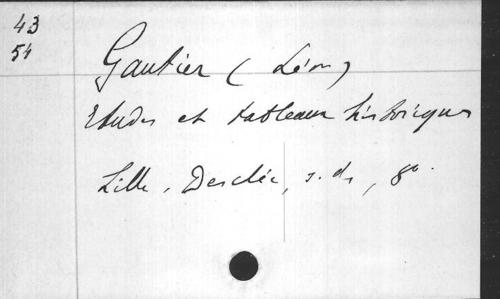 43
54
Gautier (Léon)
Etudes et tableaux historiques
Lille, Desclée, s. d., 8o.